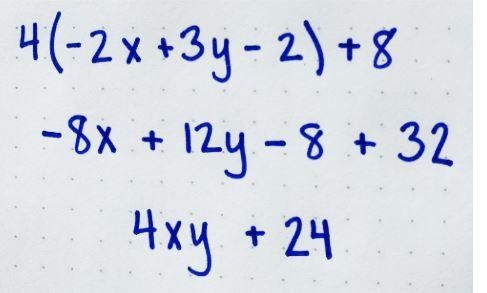 4(-2x+3y-2)+8
-8x + 12y - 8 + 32
4xy + 24